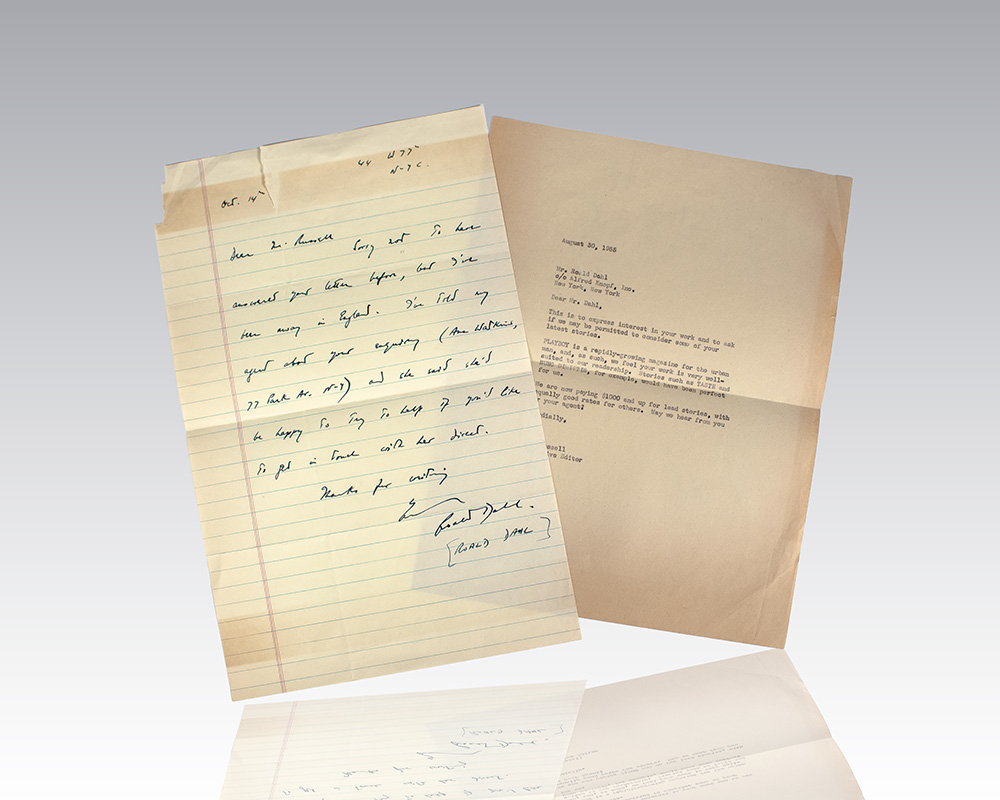 44 W 77th
N-Y C.
Oct. 14th
Dear Mr. Russell Sorry not to have
answered your letter before, but I've
been away in England. I've told my
agent about your enquiry (Ann Watkins,
77 Park Av. N-Y) and she said she'd
be happy to try to help if you'd like
to get in touch with her direct.
Thanks for writing
Roald Dahl.
[ROALD DAHL]
August 30, 1955
Mr. Roald Dahl
c/o Alfred Knopf, Inc.
New York, New York
Dear Mr. Dahl,
This is to express interest in your work and to ask
if we may be permitted to consider some of your
latest stories.
PLAYBOY is a rapidly-growing magazine for the urban
man, and, as such, we feel your work is very well-
suited to our readership. Stories such as TASTE and
NUNC DIMITTIS, for example, would have been perfect
for us.
We are now paying $1000 and up for lead stories, with
equally good rates for others. May we hear from you
r your agent?
dially,
ssell
ive Editor